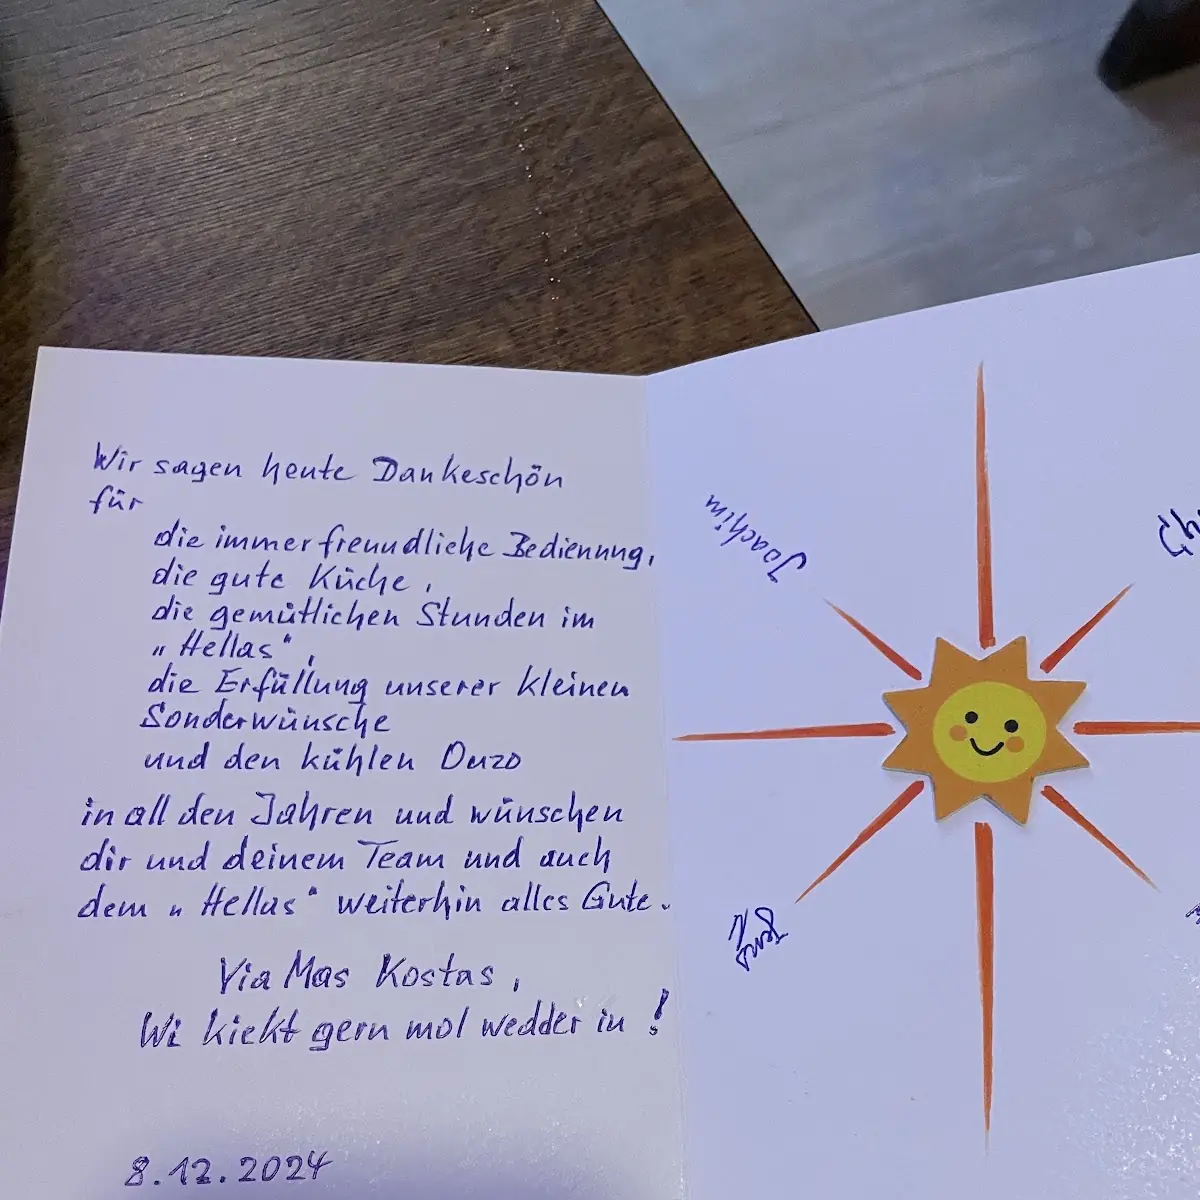 Wir sagen heute Dankeschön
für
die immer freundliche Bedienung,
die gute Küche,
die gemütlichen Stunden im
„Hellas",
die Erfüllung unserer kleinen
Sonderwünsche
und den kühlen Ouzo
in all den Jahren und wünschen
dir und deinem Team und auch
dem „Hellas" weiterhin alles Gute.
Yia Mas Kostas,
Wi kiekt gern mol wedder in!
8.12.2024
Joachim